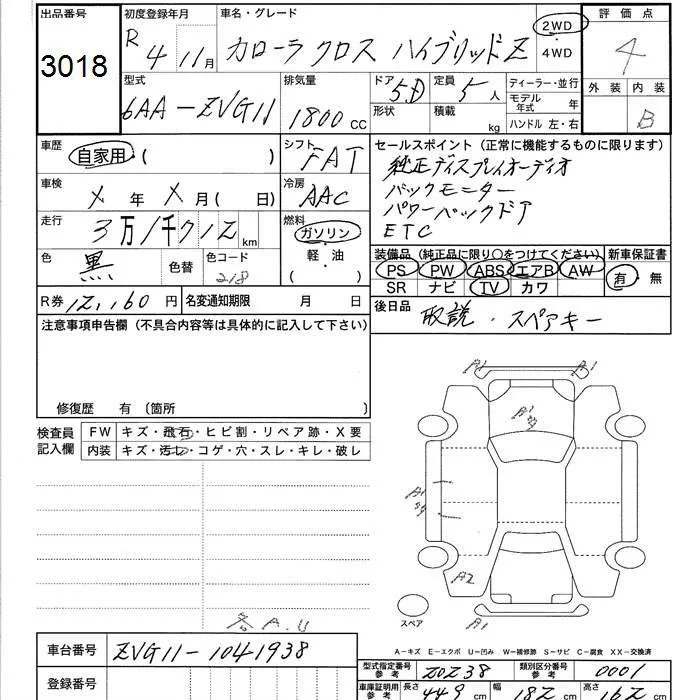 出品番号 初度登録年月 車名・グレード 評価点
3018 R4 11月 カローラクロス ハイブリッドZ 2WD・4WD 4
型式 排気量 ドア 5D 定員 5人 ディーラー・並行 外装 内装
6AA-ZVG11 1800CC 形状 積載 kg モデル年式 年 B
ハンドル 左・右
車歴 自家用・( ) シフト FAT セールスポイント(正常に機能するものに限ります)
純正ディスプレイオーディオ
車検 X年X月( 日) 冷房 AAC バックモニター
パワーバックドア
走行 3万1千712km 燃料 ガソリン・軽油( ) ETC
色 黒 色替 色コード 218 装備品(純正品に限り○をつけてください) 新車保証書
PS PW ABS エアB AW 有・無
SR ナビ TV カワ
R券 12,160円 名変通知期限 月 日 後日品 取説・スペアキー
注意事項申告欄(不具合内容等は具体的に記入して下さい)
修復歴 有〔箇所 〕
検査員記入欄 FW キズ・飛石・ヒビ割・リペア跡・X要
内装 キズ・汚レ・コゲ・穴・スレ・キレ・破レ
A1 A1
A1
A1
A2 A1
スペア
各A.U
A-キズ E-エクボ U-凹み W-補修跡 S-サビ C-腐食 XX-交換済
車台番号 ZVG11-1041938 型式指定番号 参考 20238 類別区分番号 参考 0001
登録番号 車庫証明用 参考 長さ 449cm 幅 182cm 高さ 162cm